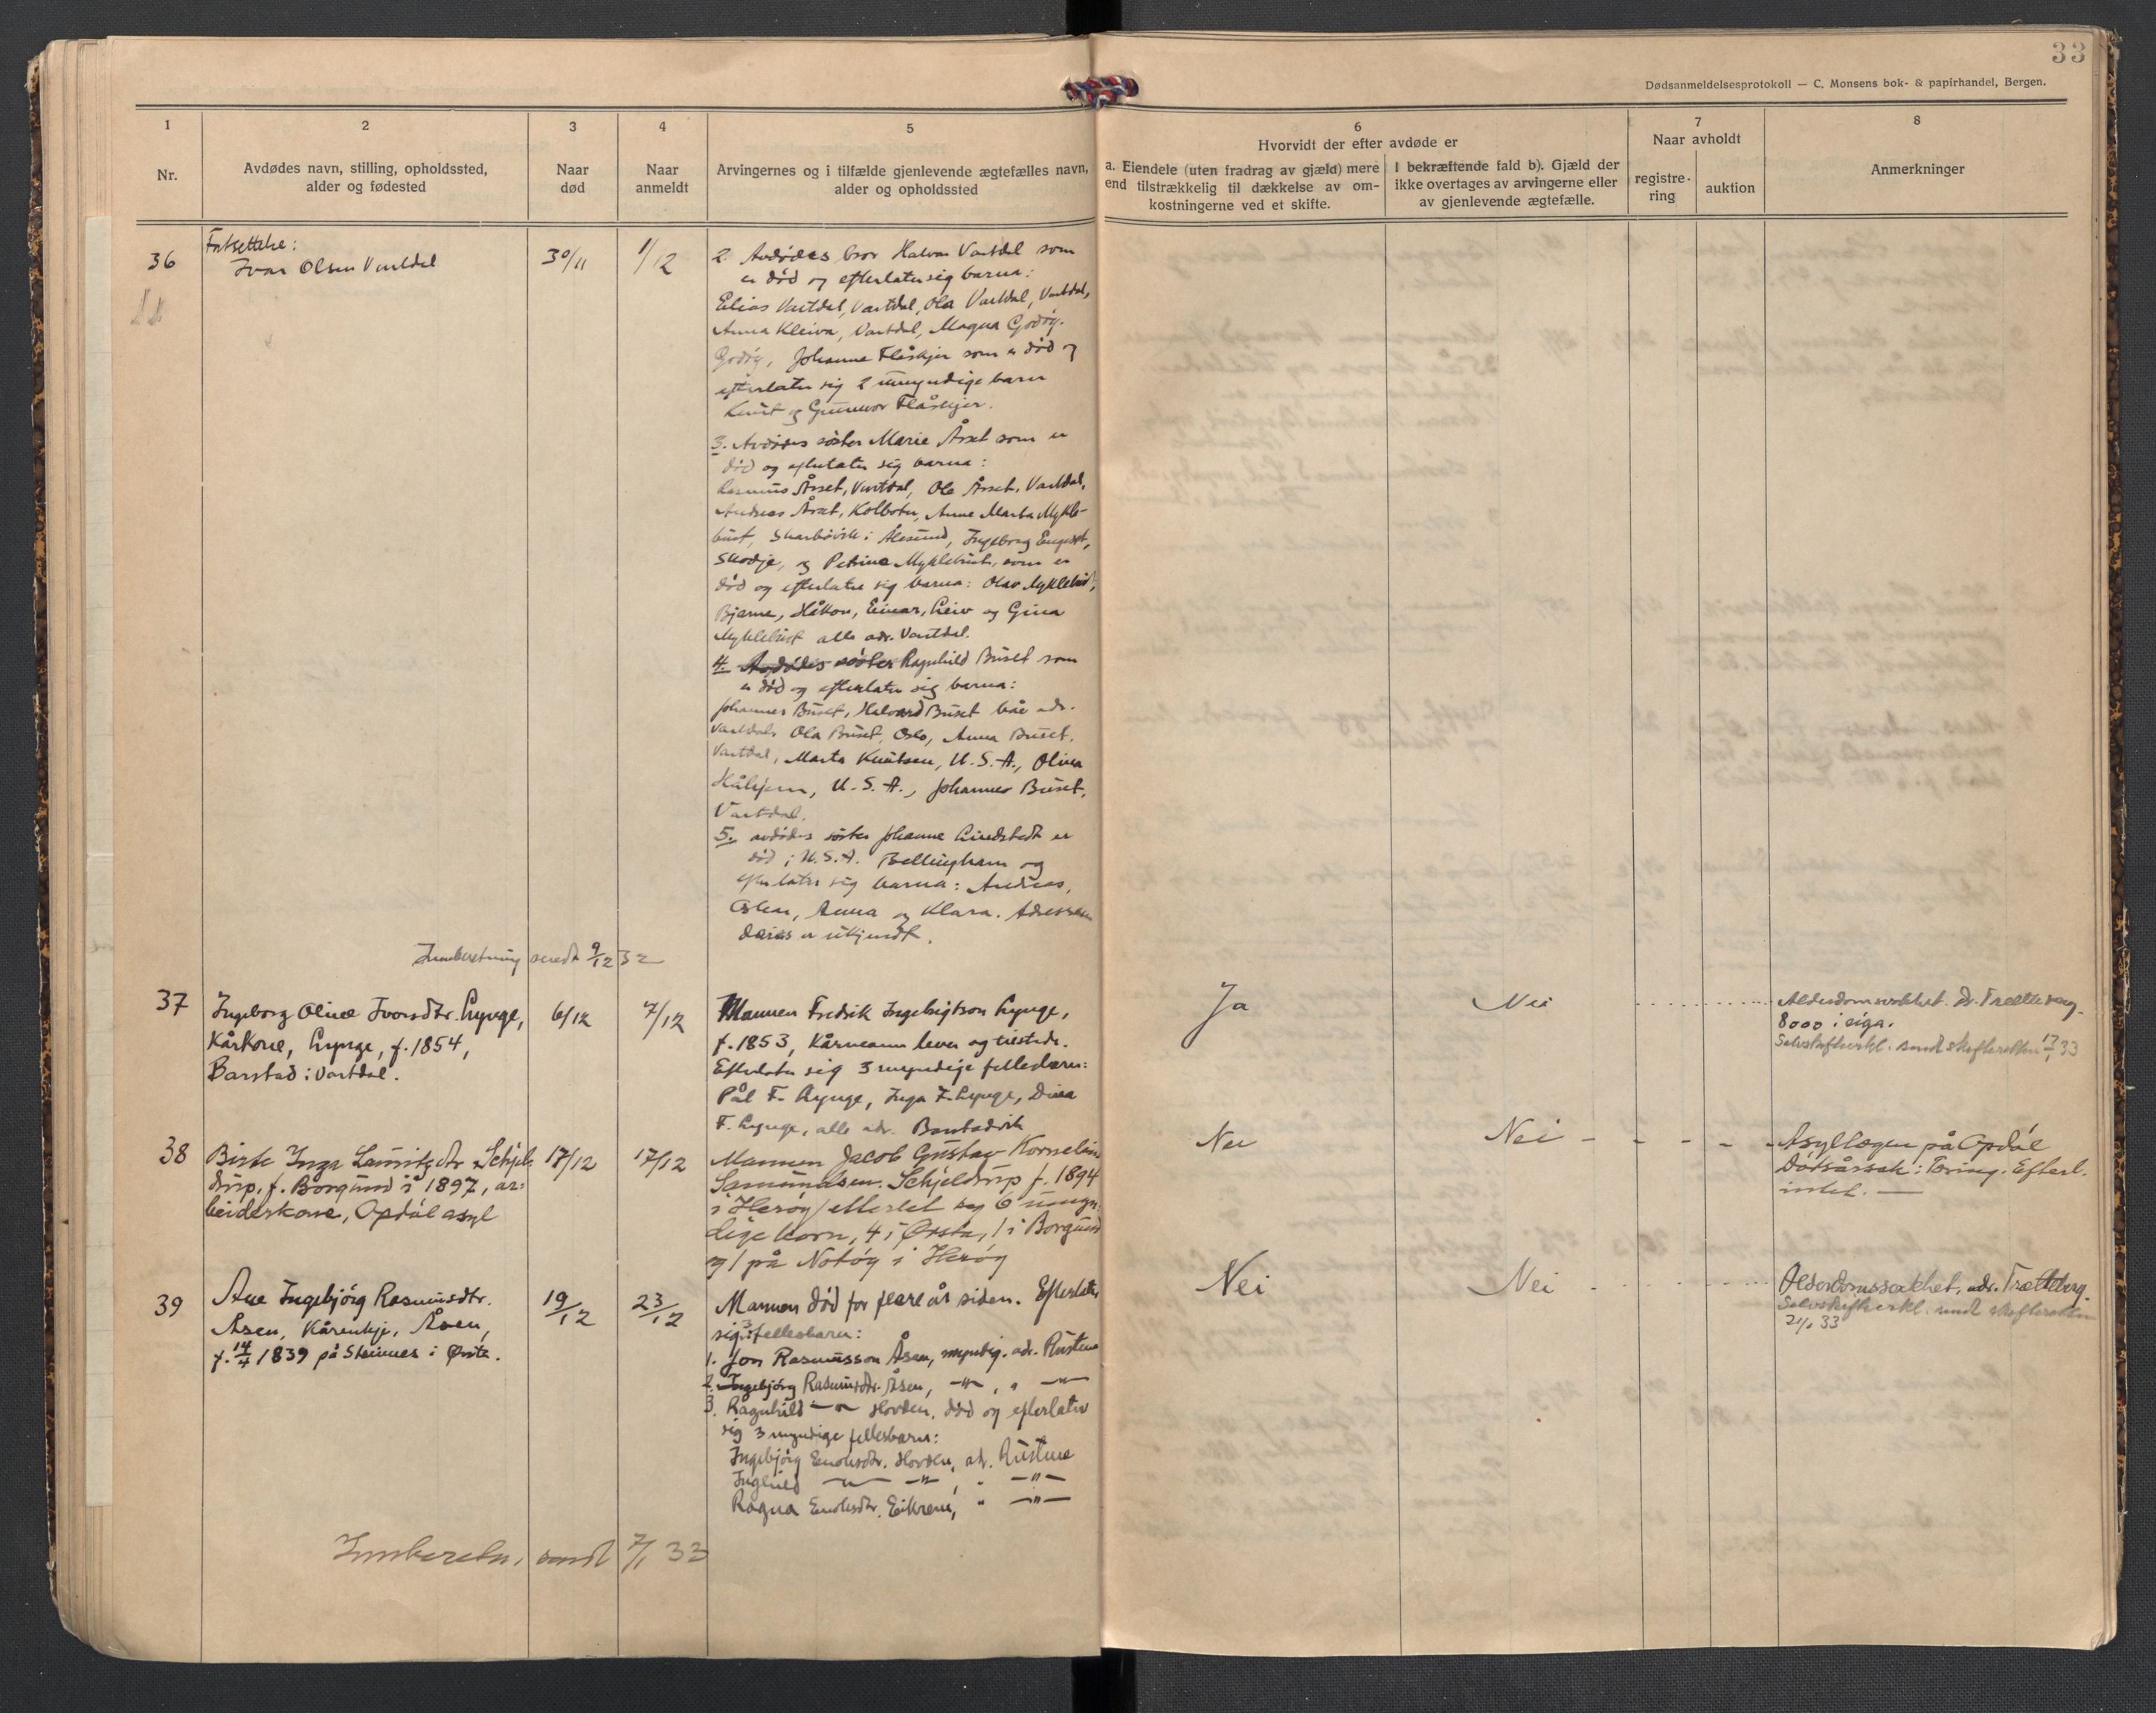 33
Dødsanmeldelsesprotokoll — C. Monsens bok- & papirhandel, Bergen.
1
2
3
4
5
6
7
8
Nr.
Avdødes navn, stilling, opholdssted,
alder og fødested
Naar
død
Naar
anmeldt
Arvingernes og i tilfælde gjenlevende ægtefælles navn,
alder og opholdssted
Hvorvidt der efter avdøde er
a. Eiendele (uten fradrag av gjæld) mere
end tilstrækkelig til dækkelse av om-
kostningerne ved et skifte.
I bekræftende fald b). Gjæld der
ikke overtages av arvingerne eller
av gjenlevende ægtefælle.
Naar avholdt
registre-
ring
auktion
Anmerkninger
36
Fortsettelse:
Ivar Olsen Vartdal
30/11
1/12
2. Avdødes bror Halvar Vartdal som
er død og efterlater sig barna:
Elias Vartdal, Vartdal, Ola Vartdal, Vartdal,
Anna Kleiva, Vartdal, Magna Godøy,
Godøy, Johanne Flåskjer som er død og
efterlater sig 2 umyndige barn
Knut og Gunnvor Flåskjer.
3. Avdødes søster Marie Årset som er
død og efterlater sig barna:
Rasmus Årset, Vartdal, Ole Årset, Vartdal,
Andreas Årset, Kolbotn, Anne Marta Mykle-
bust, Skarbøvik i Ålesund, Ingeborg Engeset,
Skodje, og Petrine Myklebust, som er
død og efterlater sig barna: Olav Myklebust,
Bjarne, Håkon, Einar, Leiv og Gina
Myklebust alle adr. Vartdal.
4. Avdødes søster Ragnhild Buset som
er død og efterlater sig barna:
Johannes Buset, Halvard Buset adr.
Vartdal, Ola Buset, Oslo, Anna Buset,
Vartdal, Marta Knutsen, U.S.A., Olina
Håhjem, U.S.A., Johannes Buset,
Vartdal.
5. avdødes søster Johanne Lindstedt er
død i U.S.A. Bellingham og
efterlater sig barna: Andreas,
Oskar, Anna og Klara. Adressen
deres er ukjendt.
Innberetning sendt 9/12 32
37
Ingeborg Oline Ivarsdtr. Lynge,
Kårkone, Lynge, f. 1854,
Barstad i Vartdal.
6/12
7/12
Mannen Fredrik Ingebrigtson Lynge,
f. 1853, Kårmann lever og tilstede.
Efterlater sig 3 myndige fellesbarn:
Pål F. Lynge, Inga F. Lynge, Dina
F. Lynge, alle adr. Barstadvik
Ja
Nei
Alderdomssvakhet. Dr. Trætteberg.
8000 i eiga.
Selvskifteerkl. sendt skifteretten 17/1 33
38
Birte Inga Lauritzdtr Schjel-
drup, f. Borgund i 1897, ar-
beiderkone, Opdøl asyl
17/12
17/12
Mannen Jacob Gustav Kornelius
Samuelsen Schjeldrup f. 1894
i Herøy/etterlet seg 6 umyn-
dige born, 4 i Ørsta, 1 i Borgund
og 1 på Notøy i Herøy
Nei
Nei
Asyllægen på Opdøl
Dødsårsak: Tæring. Efterl.
intet.
39
Ane Ingebjørg Rasmusdtr.
Åsen, Kårenkje, Åsen,
f. 14/4 1839 på Steinnes i Ørsta.
19/12
23/12
Mannen død for flere år siden. Efterlater
sig 3 fellesbarn:
1. Jon Rasmusson Åsen, myndig. adr. Rustene
2. Ingebjørg Rasmusdtr. Åsen, —"— , " —"—
3. Ragnhild —"— Hovden, død og efterlater
sig 3 myndige fellesbarn:
Ingebjørg Enoksdtr. Hovden, ad. Rustene
Inghild —"— —"— , " —"—
Ragna Enoksdtr. Eikrem, " —"—
Nei
Nei
Alderdomssvakhet, adr. Trætteberg.
Selvskifteerkl. sendt skifteretten
21/1 33
Innberetn. sendt 7/1 33